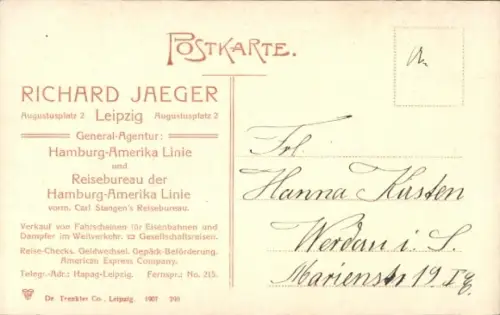 POSTKARTE.
RICHARD JAEGER
Augustusplatz 2 Leipzig Augustusplatz 2
General-Agentur:
Hamburg-Amerika Linie
und
Reisebureau der
Hamburg-Amerika Linie
vorm. Carl Stangen's Reisebureau.
Verkauf von Fahrscheinen für Eisenbahnen und
Dampfer im Weltverkehr. Gesellschaftsreisen.
Reise-Checks. Geldwechsel. Gepäck-Beförderung.
American Express Company.
Telegr.-Adr.: Hapag-Leipzig. Fernspr.: No. 215.
Dr. Trenkler Co., Leipzig. 1907
Frl.
Hanna Kasten
Werdau i. S.
Marienstr 19